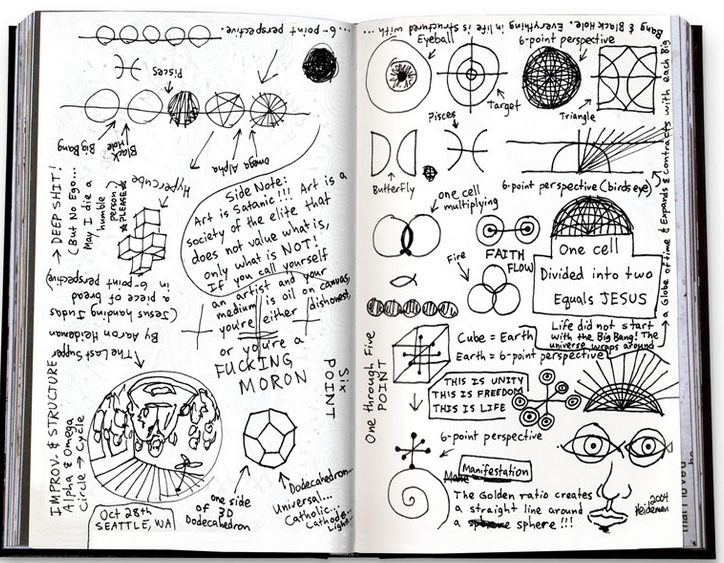 ... 6-point perspective.
Pisces
Big Bang
Black Hole
Omega Alpha
Hypercube
→ DEEP SHIT!
(But No Ego...
May I die a
humble
person)
★PLEASE★
Side Note:
Art is Satanic!!! Art is a
society of the elite that
does not value what is,
only what is NOT!
If you call yourself
an artist and your
medium is oil on canvas,
you're either dishonest,
or you're a
FUCKING
MORON
"The Last Supper"
By Aaron Heideman
(Jesus handing Judas
a piece of bread
in 6-point perspective)
Six
POINT
IMPROV. & STRUCTURE
Alpha & Omega
Circle → Cycle
Oct 28th
SEATTLE, WA
one side
of 3D
Dodecahedron
Dodecahedron...
Universal...
Catholic...
Cathode...
Light...
Bang & Black Hole. Everything in life is structured with ...
Eyeball
6-point perspective
Target
Triangle
Pisces
Butterfly
6-point perspective (birds eye)
one cell
multiplying
Fire
FAITH
FLOW
One cell
Divided into two
Equals JESUS
a globe of time & Expands & Contracts with each Big
Life did not start
with the Big Bang! The
universe wraps around
One through Five
POINT
Cube = Earth
Earth = 6-point perspective
THIS IS UNITY
THIS IS FREEDOM
THIS IS LIFE
6-point perspective
Manifestation
The Golden ratio creates
a straight line around
a sphere !!!
2004
Heideman